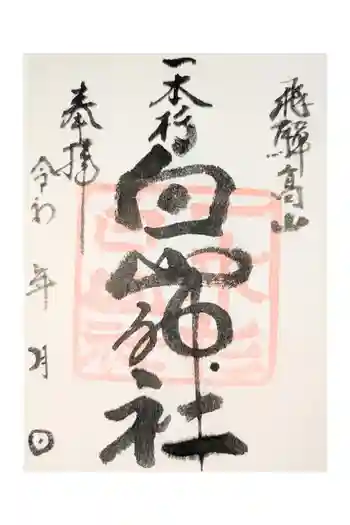 飛驒高山
一本杉
白山神社
奉拝
令和 年 月